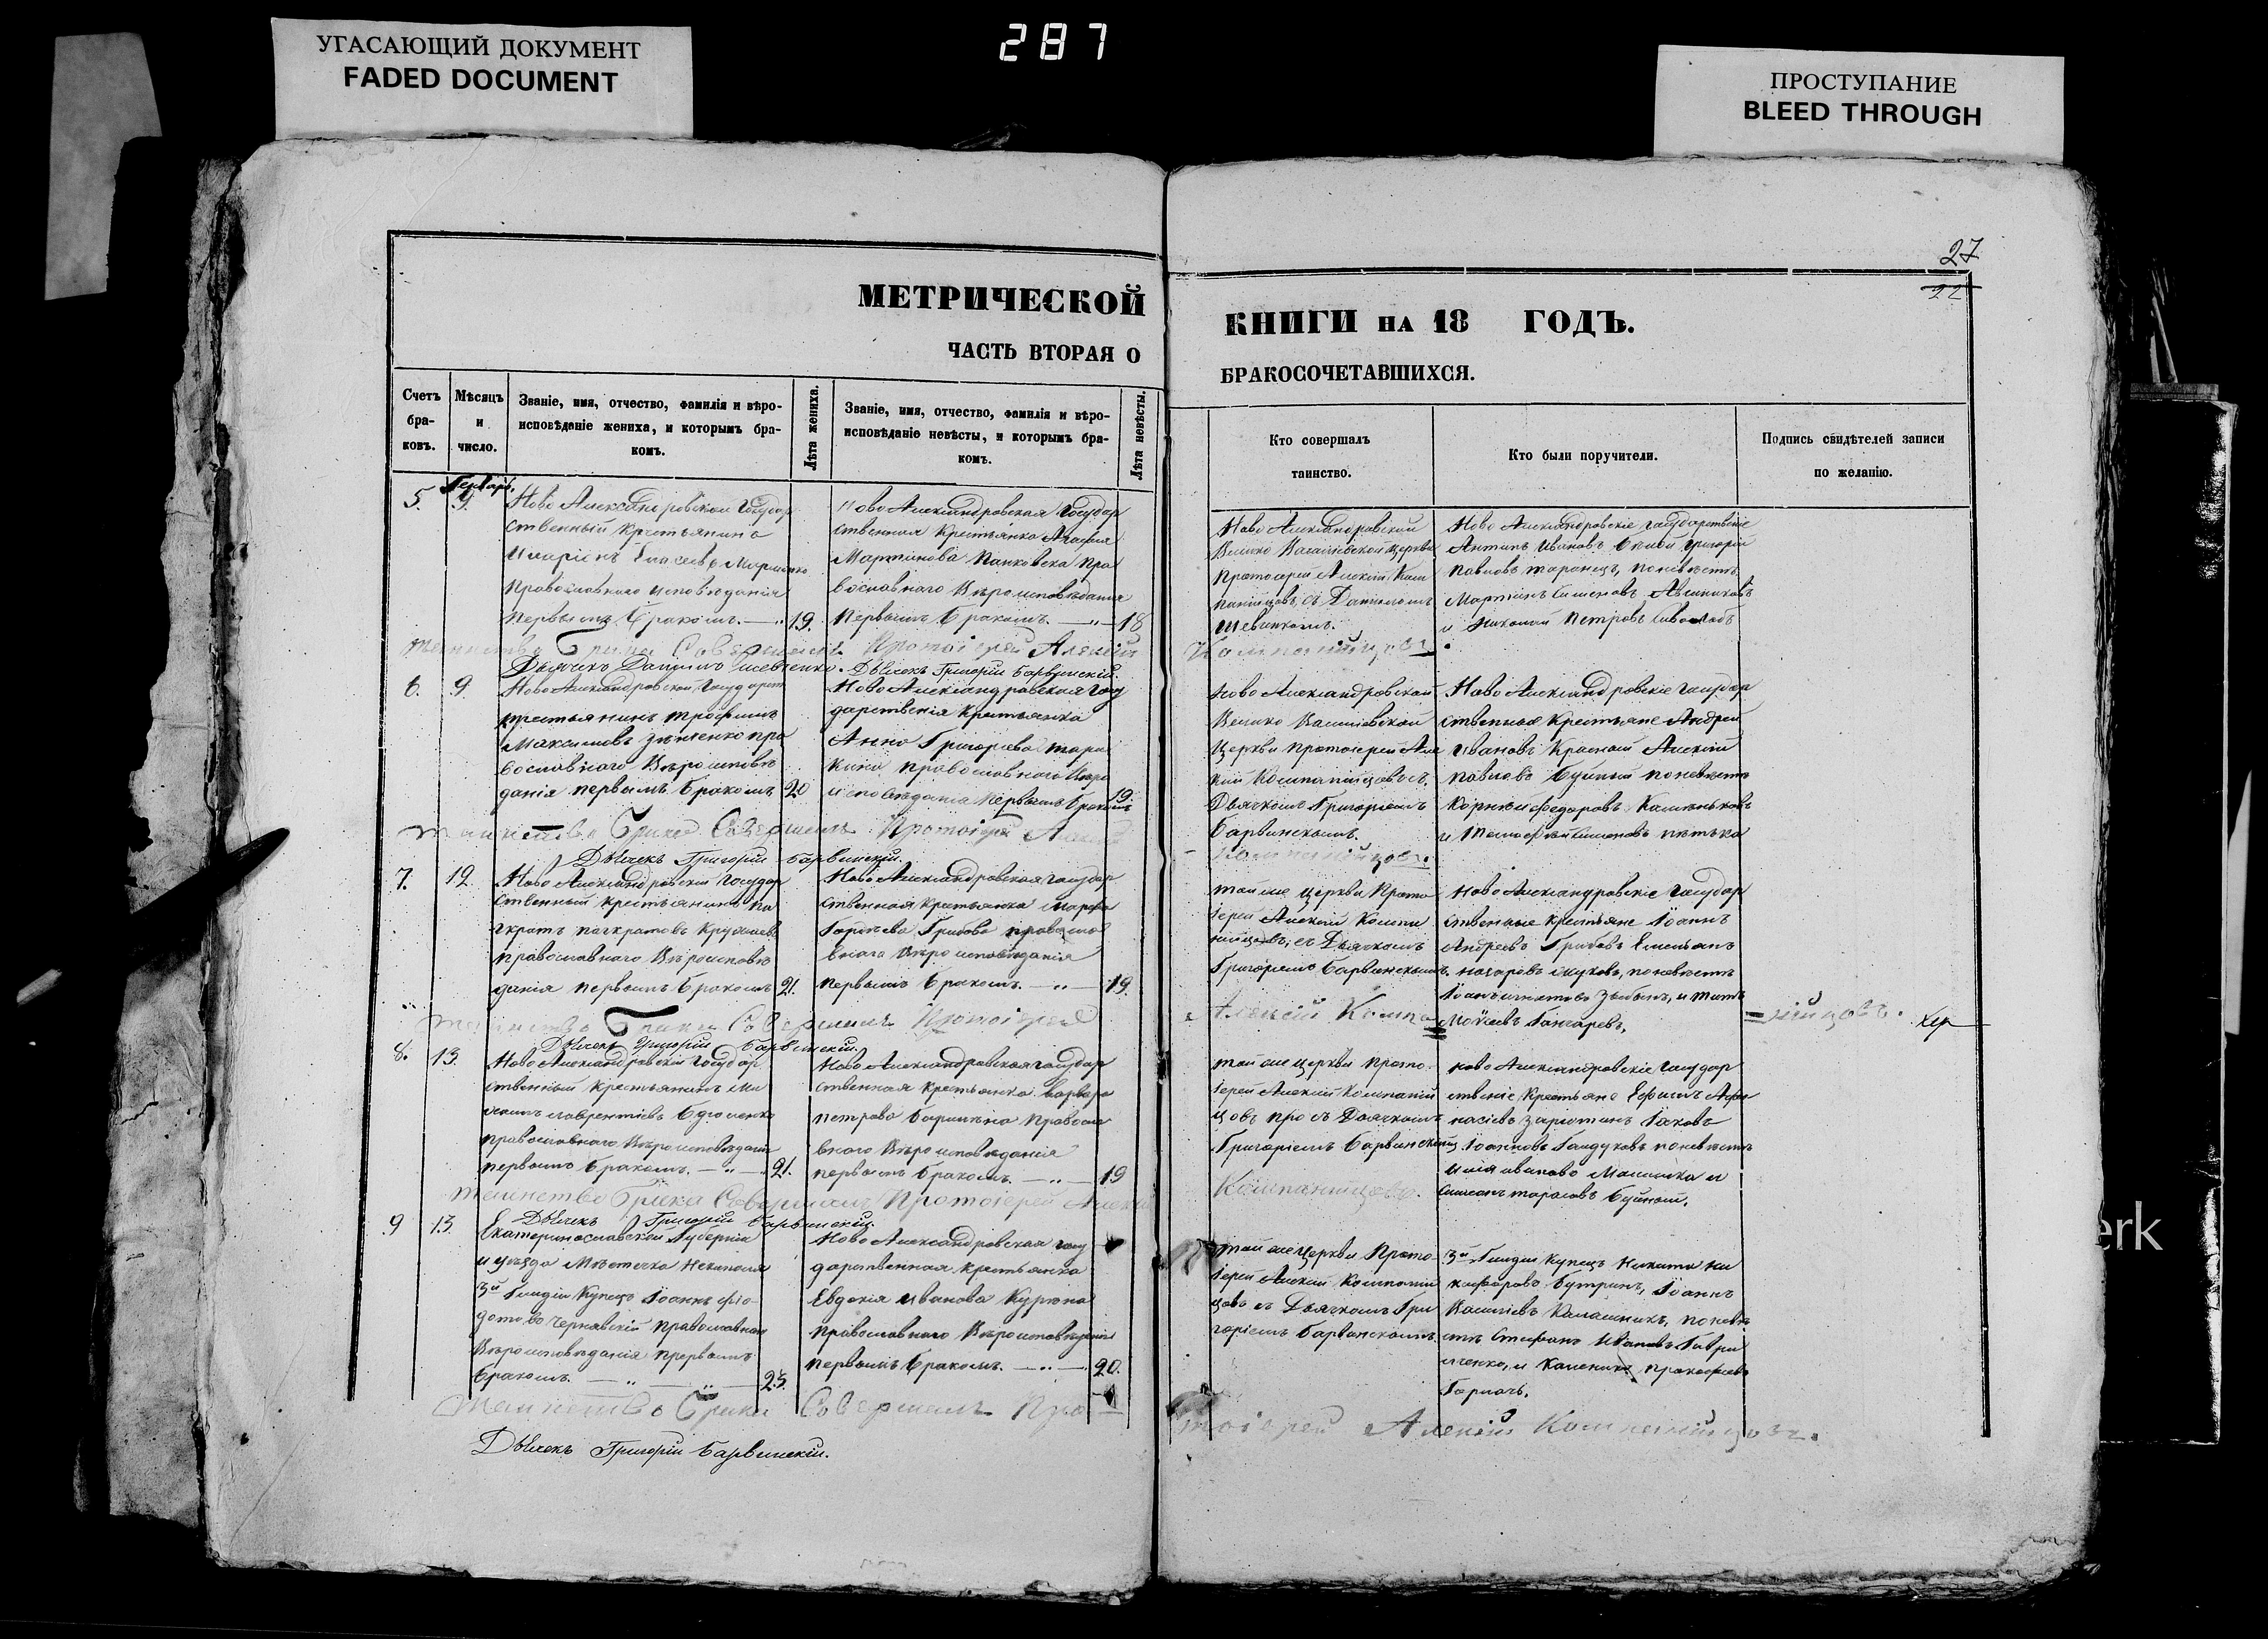 УГАСАЮЩИЙ ДОКУМЕНТ
FADED DOCUMENT
287
ПРОСТУПАНИЕ
BLEED THROUGH
27
22
МЕТРИЧЕСКОЙ
КНИГИ НА 18 ГОДЪ.
ЧАСТЬ ВТОРАЯ О
БРАКОСОЧЕТАВШИХСЯ.
Счетъ
бра-
ковъ.
Мѣсяцъ
и
число.
Званіе, имя, отчество, фамилія и вѣро-
исповѣданіе жениха, и которымъ бра-
комъ.
Лѣта жениха.
Званіе, имя, отчество, фамилія и вѣро-
исповѣданіе невѣсты, и которымъ бра-
комъ.
Лѣта невѣсты.
Кто совершалъ
таинство.
Кто были поручители.
Подпись свидѣтелей записи
по желанію.
5.
9.
ственный крестьянинъ
Православнаго исповѣданія
Первымъ бракомъ. 19.
Ново Александровская Государ
ственная Крестьянка Агафия
Мартинова Панковска Пра
вославнаго Вѣроисповѣдания
Первымъ Бракомъ. 18
Ново Александровской
Протоіерей Алексій Ком
панійцовъ, съ Данииломъ
Шевченкомъ.
Ново Александровскіе государственіе
Антипъ Ивановъ Григорій
Павловъ таранецъ, по невѣстѣ
Мартинъ Симеоновъ
и Николай Петровъ
Таинство Брака Совершалъ Протоіерей Алексій
Компанійцовъ.
Дьячокъ Даниилъ Шевченко. Дьячокъ Григорій Барвинскій.
6.
9.
Ново Александровской Государст
крестьянинъ трофимъ
Максимовъ Зѣнченко пра
вославнаго Вѣроисповѣ
данія первымъ бракомъ 20
Ново Александровская Госу
дарственія Крестьянка
Анна Григоріева
кина православнаго Вѣро
исповѣданія Первымъ бракомъ 19.
Ново Александровской
Церкви протоіерей Але
ксій Компанійцовъ съ
Дьячкомъ Григоріемъ
Барвинскимъ.
Ново Александровскіе Государ
ственные Крестьяне Андрей
Ивановъ Красной Алексій
Павловъ Буйный по невѣстѣ
Корнилій Федоровъ
и Тимофей Симоновъ пѣтька
Таинство Брака Совершалъ Протоіерей Алексій
Компанійцовъ.
Дьячекъ Григорій Барвинскій.
7.
12
Ново Александровскій Государ
ственный крестьянинъ Па
нкратъ панкратовъ
православнаго Вѣроисповѣ
данія первымъ бракомъ 21.
Ново Александровская Государ
ственная Крестьянка Марфа
Грибова правосла
внаго Вѣро исповѣданія
первымъ бракомъ. 19.
той же церкви Прото
іерей Алексій Компа
нійцовъ, съ Дьячкомъ
Григоріемъ Барвинскимъ.
Ново Александровскіе Государ
ственные крестьяне Іоаннъ
Андреевъ Грибовъ Емельянъ
назаровъ по невѣстѣ
и титъ
Моисѣевъ Гончаревъ,
Таинство Брака Совершилъ Протоіерей
Алексій Компа=
=нійцовъ.
Дьячекъ Григорій Барвинскій.
8.
13.
Ново Александровскій Государ
ственный крестьянинъ Ми
хаилъ лаврентіевъ
православнаго Вѣроисповѣданія
первымъ бракомъ. 21.
Ново Александровская государ
ственная крестьянка варвара
петрова правосла
внаго Вѣро исповѣданія
первымъ бракомъ. 19
той же церкви прото-
іерей Алексій Компаній
цовъ съ Дьячкомъ
Григоріемъ Барвинскимъ
ново Александровскіе государ
ственіе Крестьяне Ефимъ Афа
насіевъ Іаковъ
Іоанновъ Гайдуковъ по невѣстѣ
Илія ивановъ и
Симеонъ тарасовъ Буйной.
Таинство Брака Совершалъ Протоіерей Алексій
Компанійцовъ.
Дьячекъ Григорій Барвинскій.
9
13.
Екатеринославской Губерніи
и уѣзда Мѣстечка Никополя
3й Гилдіи Купецъ Іоаннъ Фео-
дотовъ Чернявскій Православнаго
Вѣроисповѣданія первымъ
бракомъ. 25.
Ново Александровская госу
дарственная крестьянка
Евдокія иванова
православнаго Вѣроисповѣданія
первымъ бракомъ. 20.
той же церкви Прото-
іерей Алексій Компаній
цовъ съ Дьячкомъ Гри
горіемъ Барвинскимъ
3й Гилдіи Купецъ Никита Ни
кифоровъ Бутринъ, Іоаннъ
Василіевъ Калашникъ, по невѣ
стѣ Стефанъ Ивановъ Гаври
ленко, и прокофіевъ
Горпачь.
Таинство Брака Совершалъ Про-
тоіерей Алексій Компанійцовъ.
Дьячекъ Григорій Барвинскій.
erk